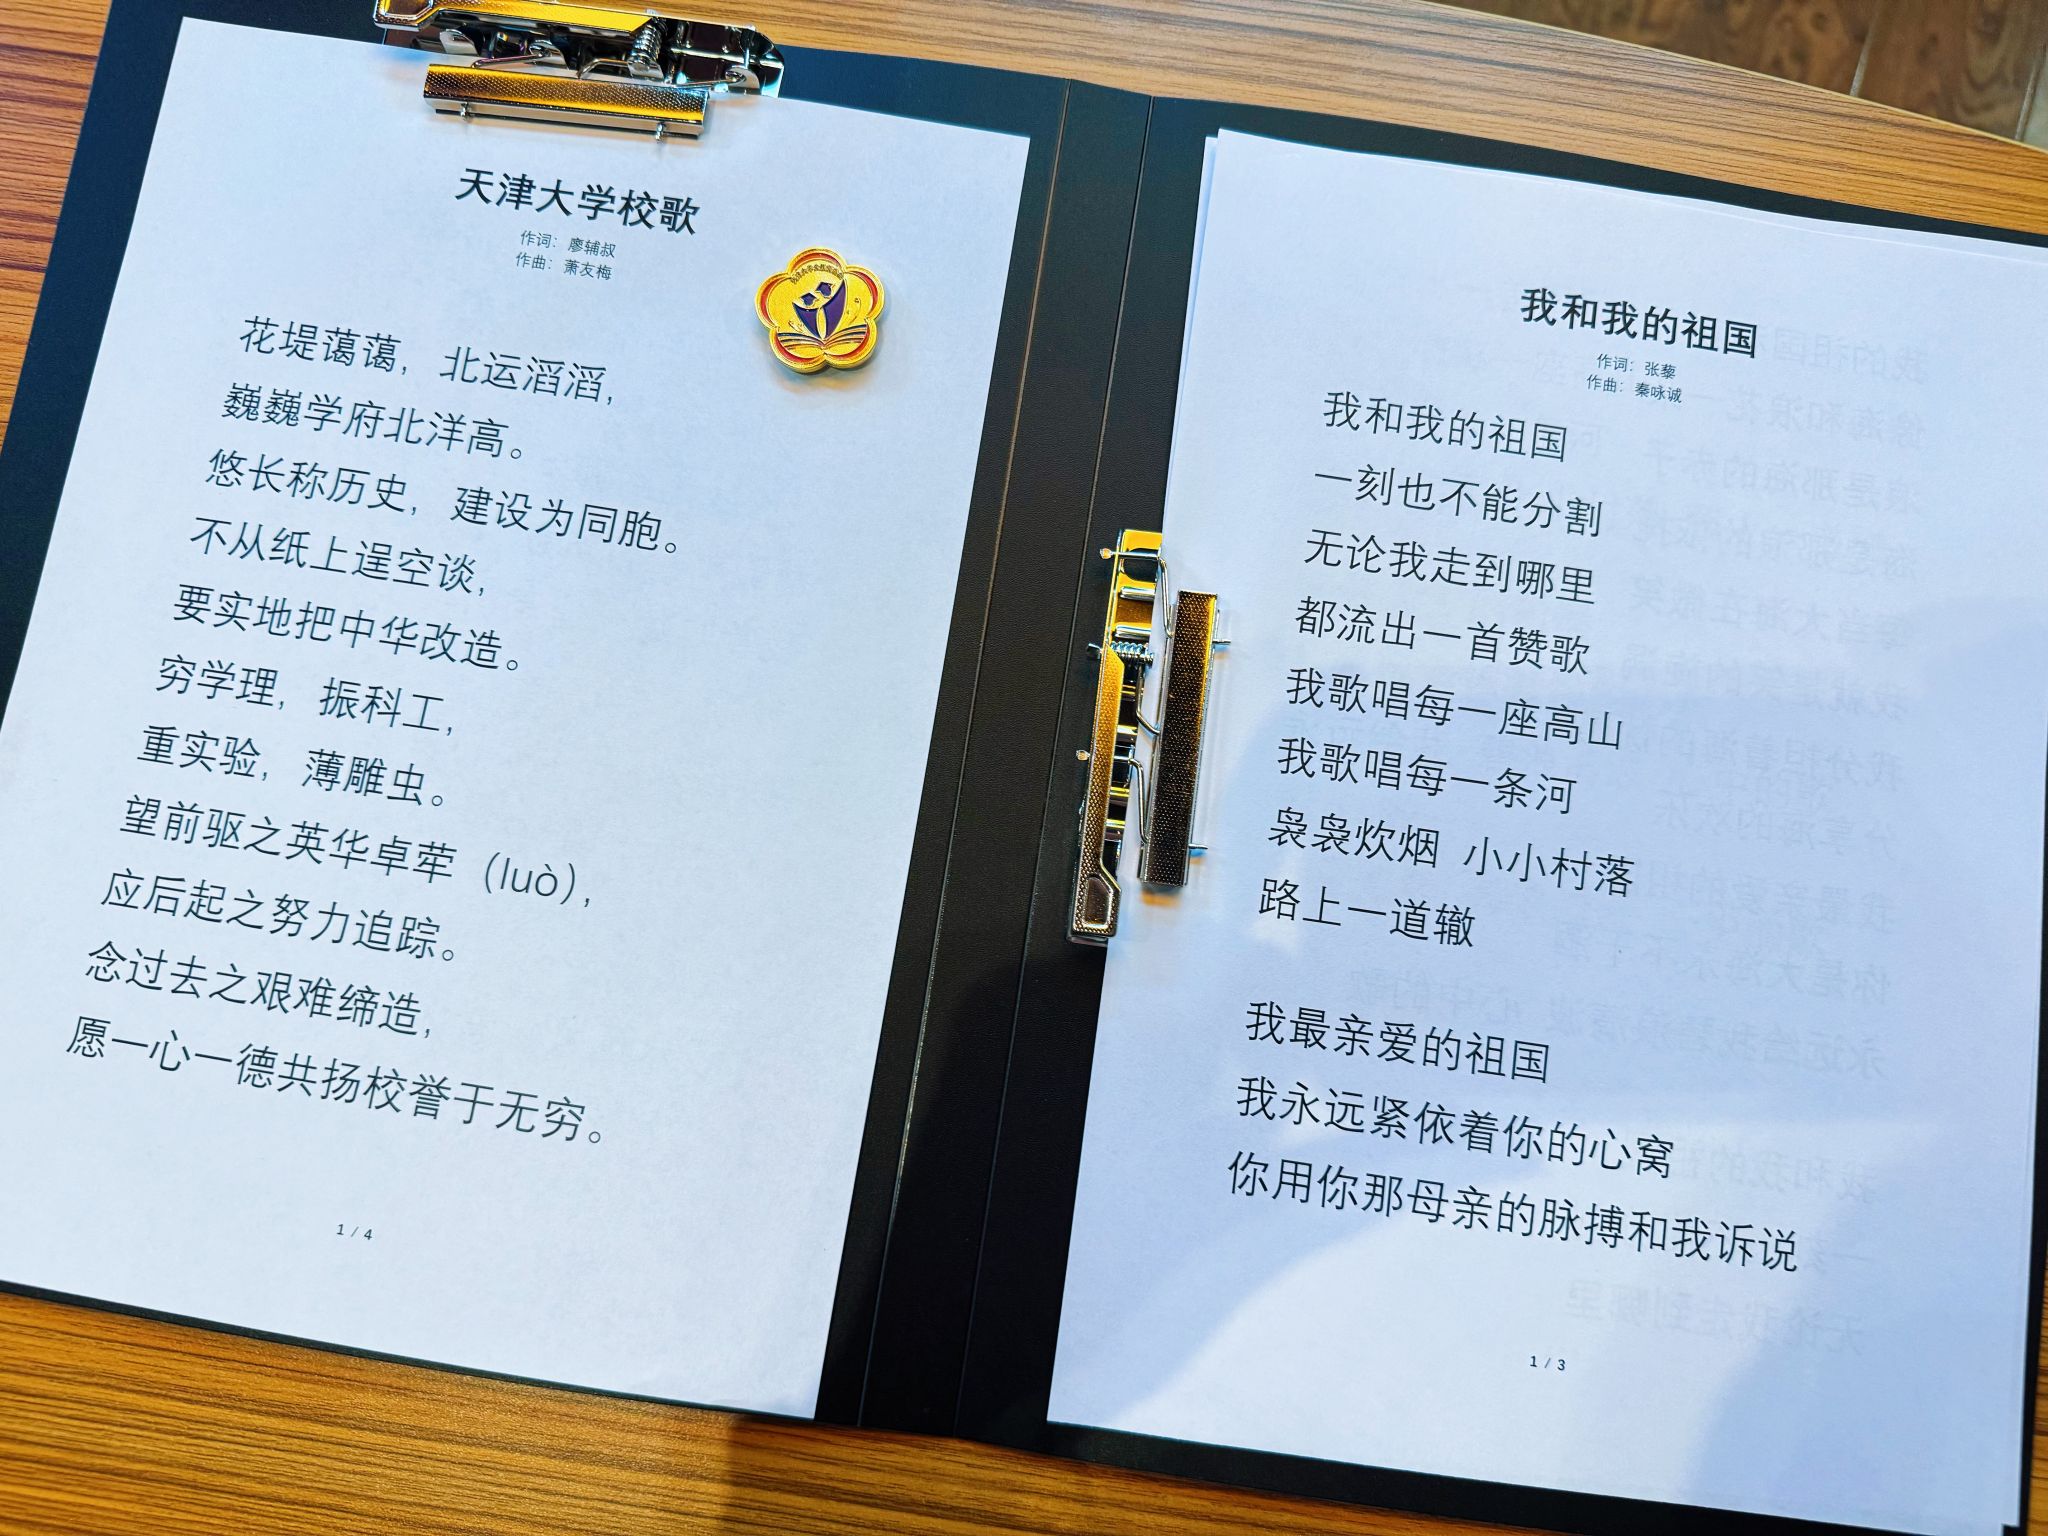 天津大学校歌
作词：廖辅叔
作曲：萧友梅
花堤蔼蔼，北运滔滔，
巍巍学府北洋高。
悠长称历史，建设为同胞。
不从纸上逞空谈，
要实地把中华改造。
穷学理，振科工，
重实验，薄雕虫。
望前驱之英华卓荦（luò），
应后起之努力追踪。
念过去之艰难缔造，
愿一心一德共扬校誉于无穷。
1 / 4
我和我的祖国
作词：张藜
作曲：秦咏诚
我和我的祖国
一刻也不能分割
无论我走到哪里
都流出一首赞歌
我歌唱每一座高山
我歌唱每一条河
袅袅炊烟 小小村落
路上一道辙
我最亲爱的祖国
我永远紧依着你的心窝
你用你那母亲的脉搏和我诉说
1 / 3